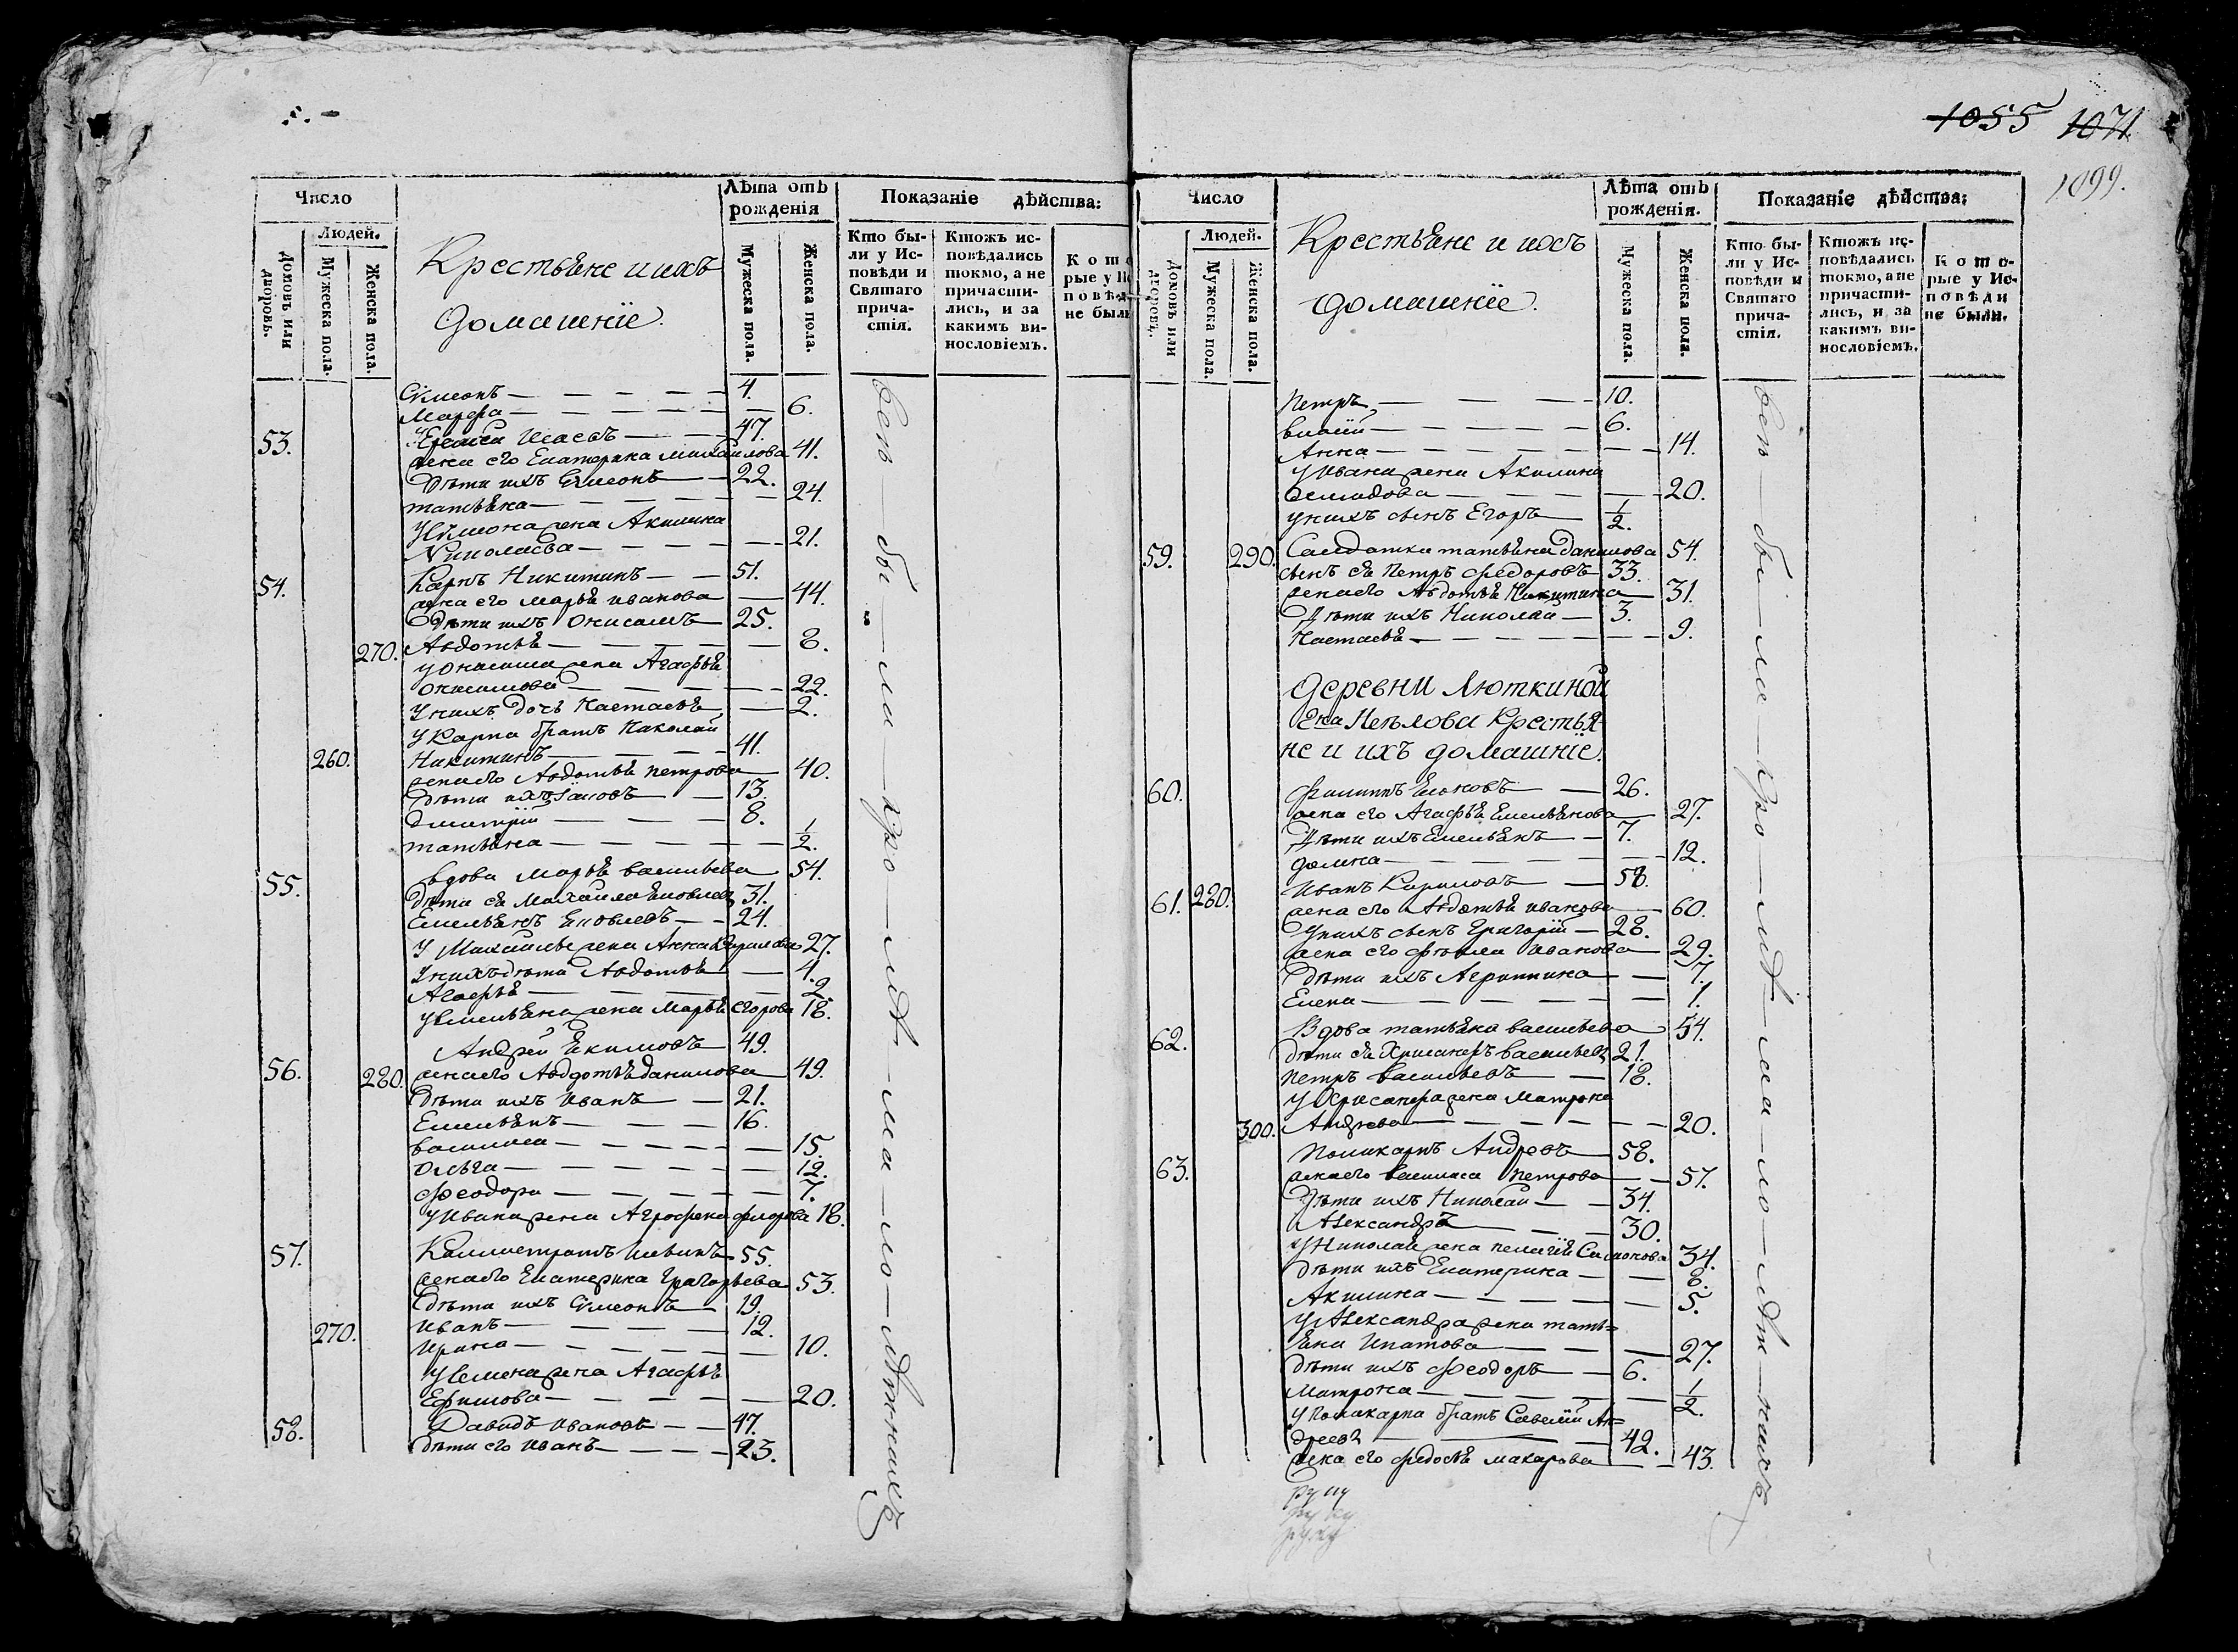 1055 1071
1099.
Число
Людей.
Домовъ или дворовъ.
Мужеска пола.
Женска пола.
Крестьяне и ихъ
домашніе.
Лѣта отъ
рожденія
Мужеска пола.
Женска пола.
Показаніе дѣйства:
Кто бы-
ли у Ис-
повѣди и
Святаго
прича-
стія.
Ктожъ ис-
повѣдались
токмо, а не
причасти-
лись, и за
какимъ ви-
нословіемъ.
К о т о
рые у Ис
п о в ѣ д
не были
Сѵмеонъ 4.
Марфа 6.
53. Исаевъ 47.
жена его Екатерина Михаилова 41.
Дѣти ихъ Сѵмеонъ 22.
татьяна 24.
У Сѵмеона жена Акилина
Николаева 21.
54. Карпъ Никитинъ 51.
жена его Марья иванова 44.
Дѣти ихъ Онисимъ 25.
270. Авдотья 8.
У Онисима жена Агафья
Онисимова 22.
У нихъ дочь Настасья 2.
У Карпа братъ Николай
260. Никитинъ 41.
жена его Авдотья петрова 40.
Дѣти ихъ Іаковъ 13.
Дмитрій 8.
татьяна 1/2.
55. вдова Марья васильева 54.
дѣти ея Михаила Яковлевъ 31.
Емельянъ Яковлевъ 24.
У Михаилы жена Анна Кирилова 27.
У нихъ дѣти Авдотья 4.
Агафья 2.
У Емельяна жена Марья Егорова 18.
56. Андрей Екимовъ 49.
280. жена его Авдотья Данилова 49.
Дѣти ихъ Иванъ 21.
Емельянъ 16.
василиса 15.
Ольга 12.
Феодора 7.
У Ивана жена Аграфена 18.
57. Каллистратъ 55.
жена его Екатерина Григорьева 53.
Дѣти ихъ Сѵмеонъ 19.
270. Иванъ 12.
Ирина 10.
У Семена жена Агафья
Ефимова 20.
58. Давидъ Ивановъ 47.
Дѣти его Иванъ 23.
всѣ бы-ли
Число
Людей.
Домовъ или дворовъ.
Мужеска пола.
Женска пола.
Крестьяне и ихъ
домашніе.
Лѣта отъ
рожденія.
Мужеска пола.
Женска пола.
Показаніе дѣйства:
Кто бы-
ли у Ис-
повѣди и
Святаго
прича-
стія.
Ктожъ ис-
повѣдались
токмо, а не
причасти-
лись, и за
какимъ ви-
нословіемъ.
К о т о-
рые у Ис-
п о в ѣ д и
не были.
Петръ 10.
6.
Анна 14.
У Ивана жена Акилина
Демидова 20.
У нихъ сынъ Егоръ 1/2.
59. 290. Салдатка татьяна Данилова 54.
сынъ ея Петръ Федоровъ 33.
жена его Авдотья Никитина 31.
Дѣти ихъ Николай 3.
Настасья 9.
Деревни Люткиной
Неѣлова Крестья-
не и ихъ домашніе.
60. Филиппъ Яковъ 26.
жена его Агафья Емельянова 27.
Дѣти ихъ Емельянъ 7.
Домна 12.
61. 280. Иванъ Кириловъ 58.
жена его Авдотья иванова 60.
У нихъ сынъ Григорій 28.
жена его Фекла Иванова 29.
Дѣти ихъ Агрипина 7.
Елена 1.
62. Вдова татьяна васильева 54.
дѣти ея Хрисанфъ васильевъ 21.
Петръ васильевъ 18.
У Хрисанфа жена Матрона
300. Андрева 20.
63. Поликарпъ Андревъ 58.
жена его василиса Петрова 57.
Дѣти ихъ Николай 34.
Александръ 30.
У Николая жена пелагія Симонова 34.
Дѣти ихъ Екатерина 8.
Акилина 5.
У Александра жена тать=
яна Ипатова 27.
Дѣти ихъ Феодоръ 6.
Матрона 1/2.
У Поликарпа братъ Савелій Ан=
дреевъ 42.
жена его Федосья макарова 43.
всѣ бы-ли